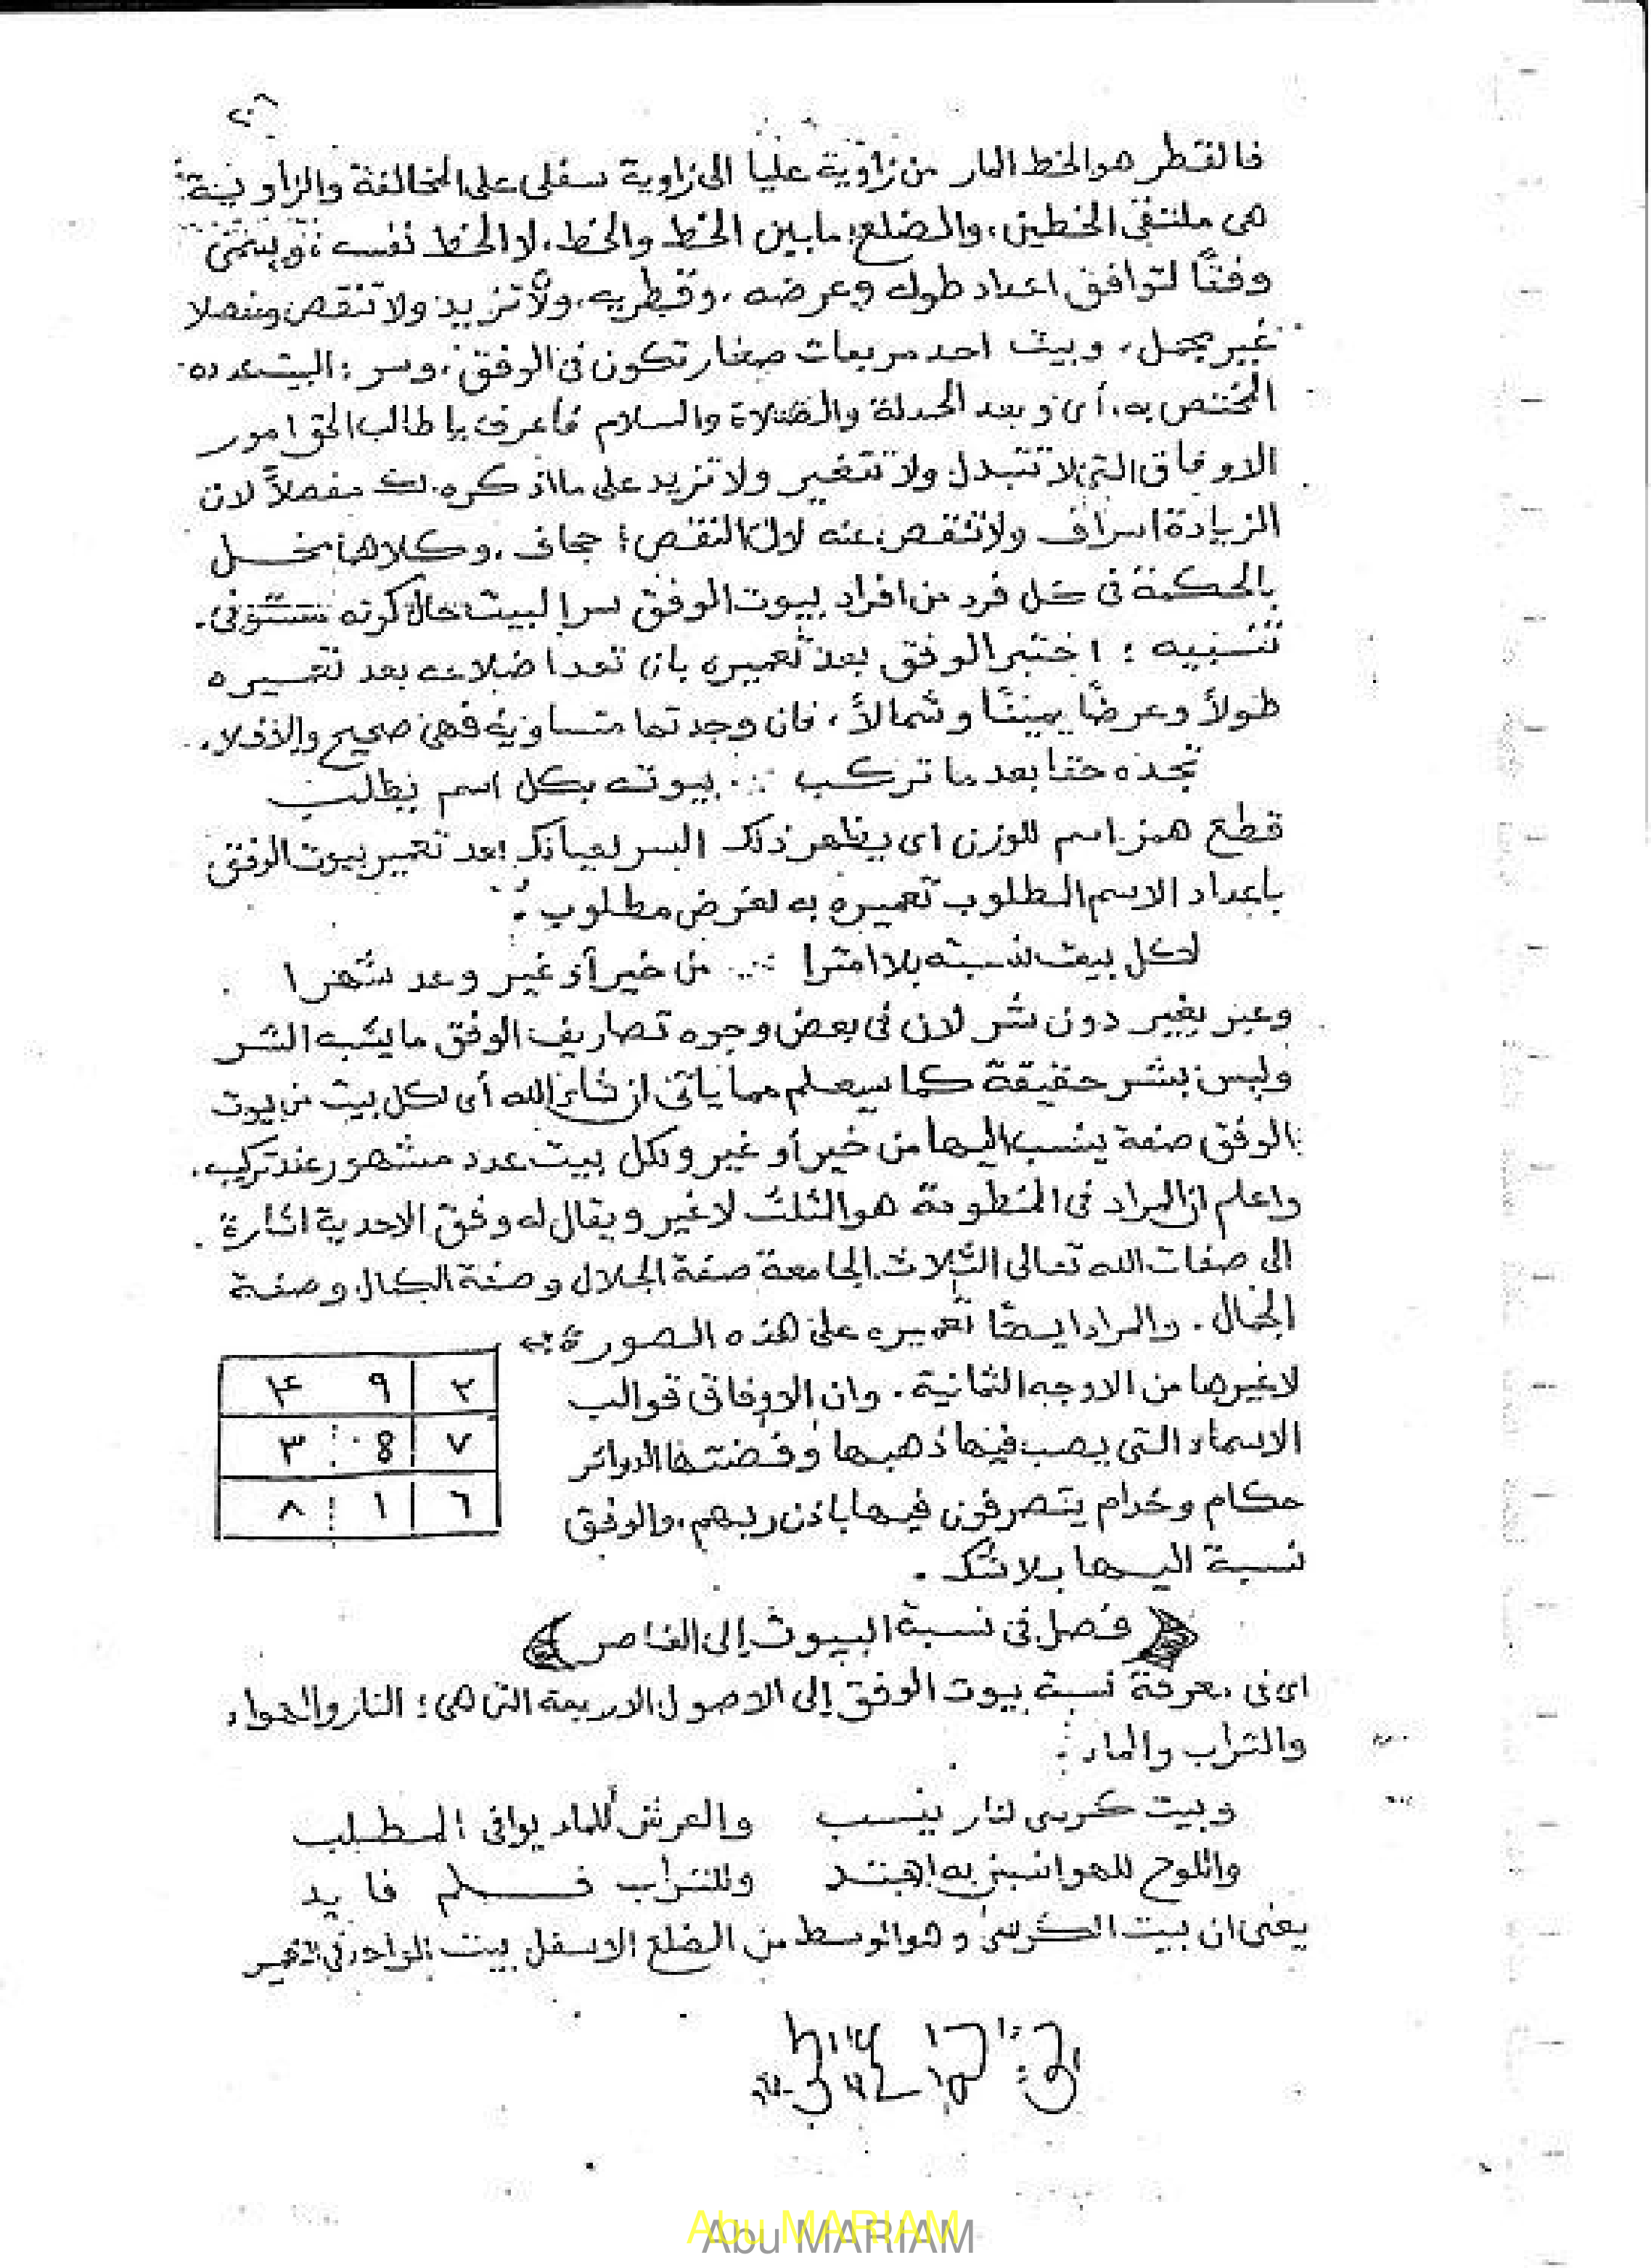 فالقطر هو الخط المار من زاوية عليا الى زاوية سفلى على المخالفة والزاوية
هى ملتقى الخطين، والضلع: ما بين الخط والخط، لا الخط نفسه
وفقاً لتوافق اعداد طوله وعرضه، وقطريه، ولا تزيد ولا تنقص
غير مجمل، وبيت احد مربعات صغار تكون فى الوفق، وسر: البيت عدده
المختص به، أى وبعد الحمدلة والصلاة والسلام فاعرف يا طالب الحق امور
الاوفاق التى لا تتبدل ولا تتغير ولا تزيد على ما اذكره لك مفصلاً لان
الزيادة اسراف ولا تنقص عنه لان النقص، وكلاهما مخل
بالحكمة فى كل فرد من افراد بيوت الوفق
تنبيه: اختبر الوفق بعد تعميره بان تعد اضلاعه بعد تعميره
طولاً وعرضاً يميناً وشمالاً، فان وجدتها متساوية فهى صحيح والا فلا.
تجده حقا بعد ما تركب ∴ بيوته بكل اسم يطلب
قطع همز اسم للوزن اى يظهر ذلك السر بعد تعمير بيوت الوفق
باعداد الاسم المطلوب تعميره به لغرض مطلوب:
لكل بيت نسبته بلا امترا ∴ من خير أو غير وعد شهرا
وعبر بغير دون شر لان فى بعض وجوه تصاريف الوفق ما يشبه الشر
وليس بشر حقيقة كما سيعلم مما ياتى ان شاء الله أى لكل بيت من بيوت
الوفق صفة ينسب اليها من خير أو غير ولكل بيت عدد مشهور عند تركيبه.
واعلم ان المراد فى المنظومة هو المثلث لا غير ويقال له وفق الاحدية اشارة
الى صفات الله تعالى الثلاث الجامعة صفة الجلال وصفة الكمال وصفة
الجمال. والمراد ايضًا تعميره على هذه الصورة:
٢ ٩ ٤
لا غيرها من الاوجه الثمانية. وان الاوفاق قوالب
٧ 8 ٣
الاسماء التى يصب فيها ذهبها وفضتها الدوائر
حكام وخدام يتصرفون فيها باذن ربهم، والوفق
٦ ١ ٨
نسبة اليها بلا شك.
فصل فى نسبة البيوت إلى العناصر
اى فى معرفة نسبة بيوت الوفق إلى الاصول الاربعة التى هى: النار والهواء
والتراب والماء:
وبيت كرسى لنار ينسب والعرش للماء يوافى المطلب
واللوح للهوا انسبن به اهتد وللتراب قلم فا يد
يعنى ان بيت الكرسى وهو الوسط من الضلع الاسفل بيت الواحد فى التعمير
Abu MARIAM